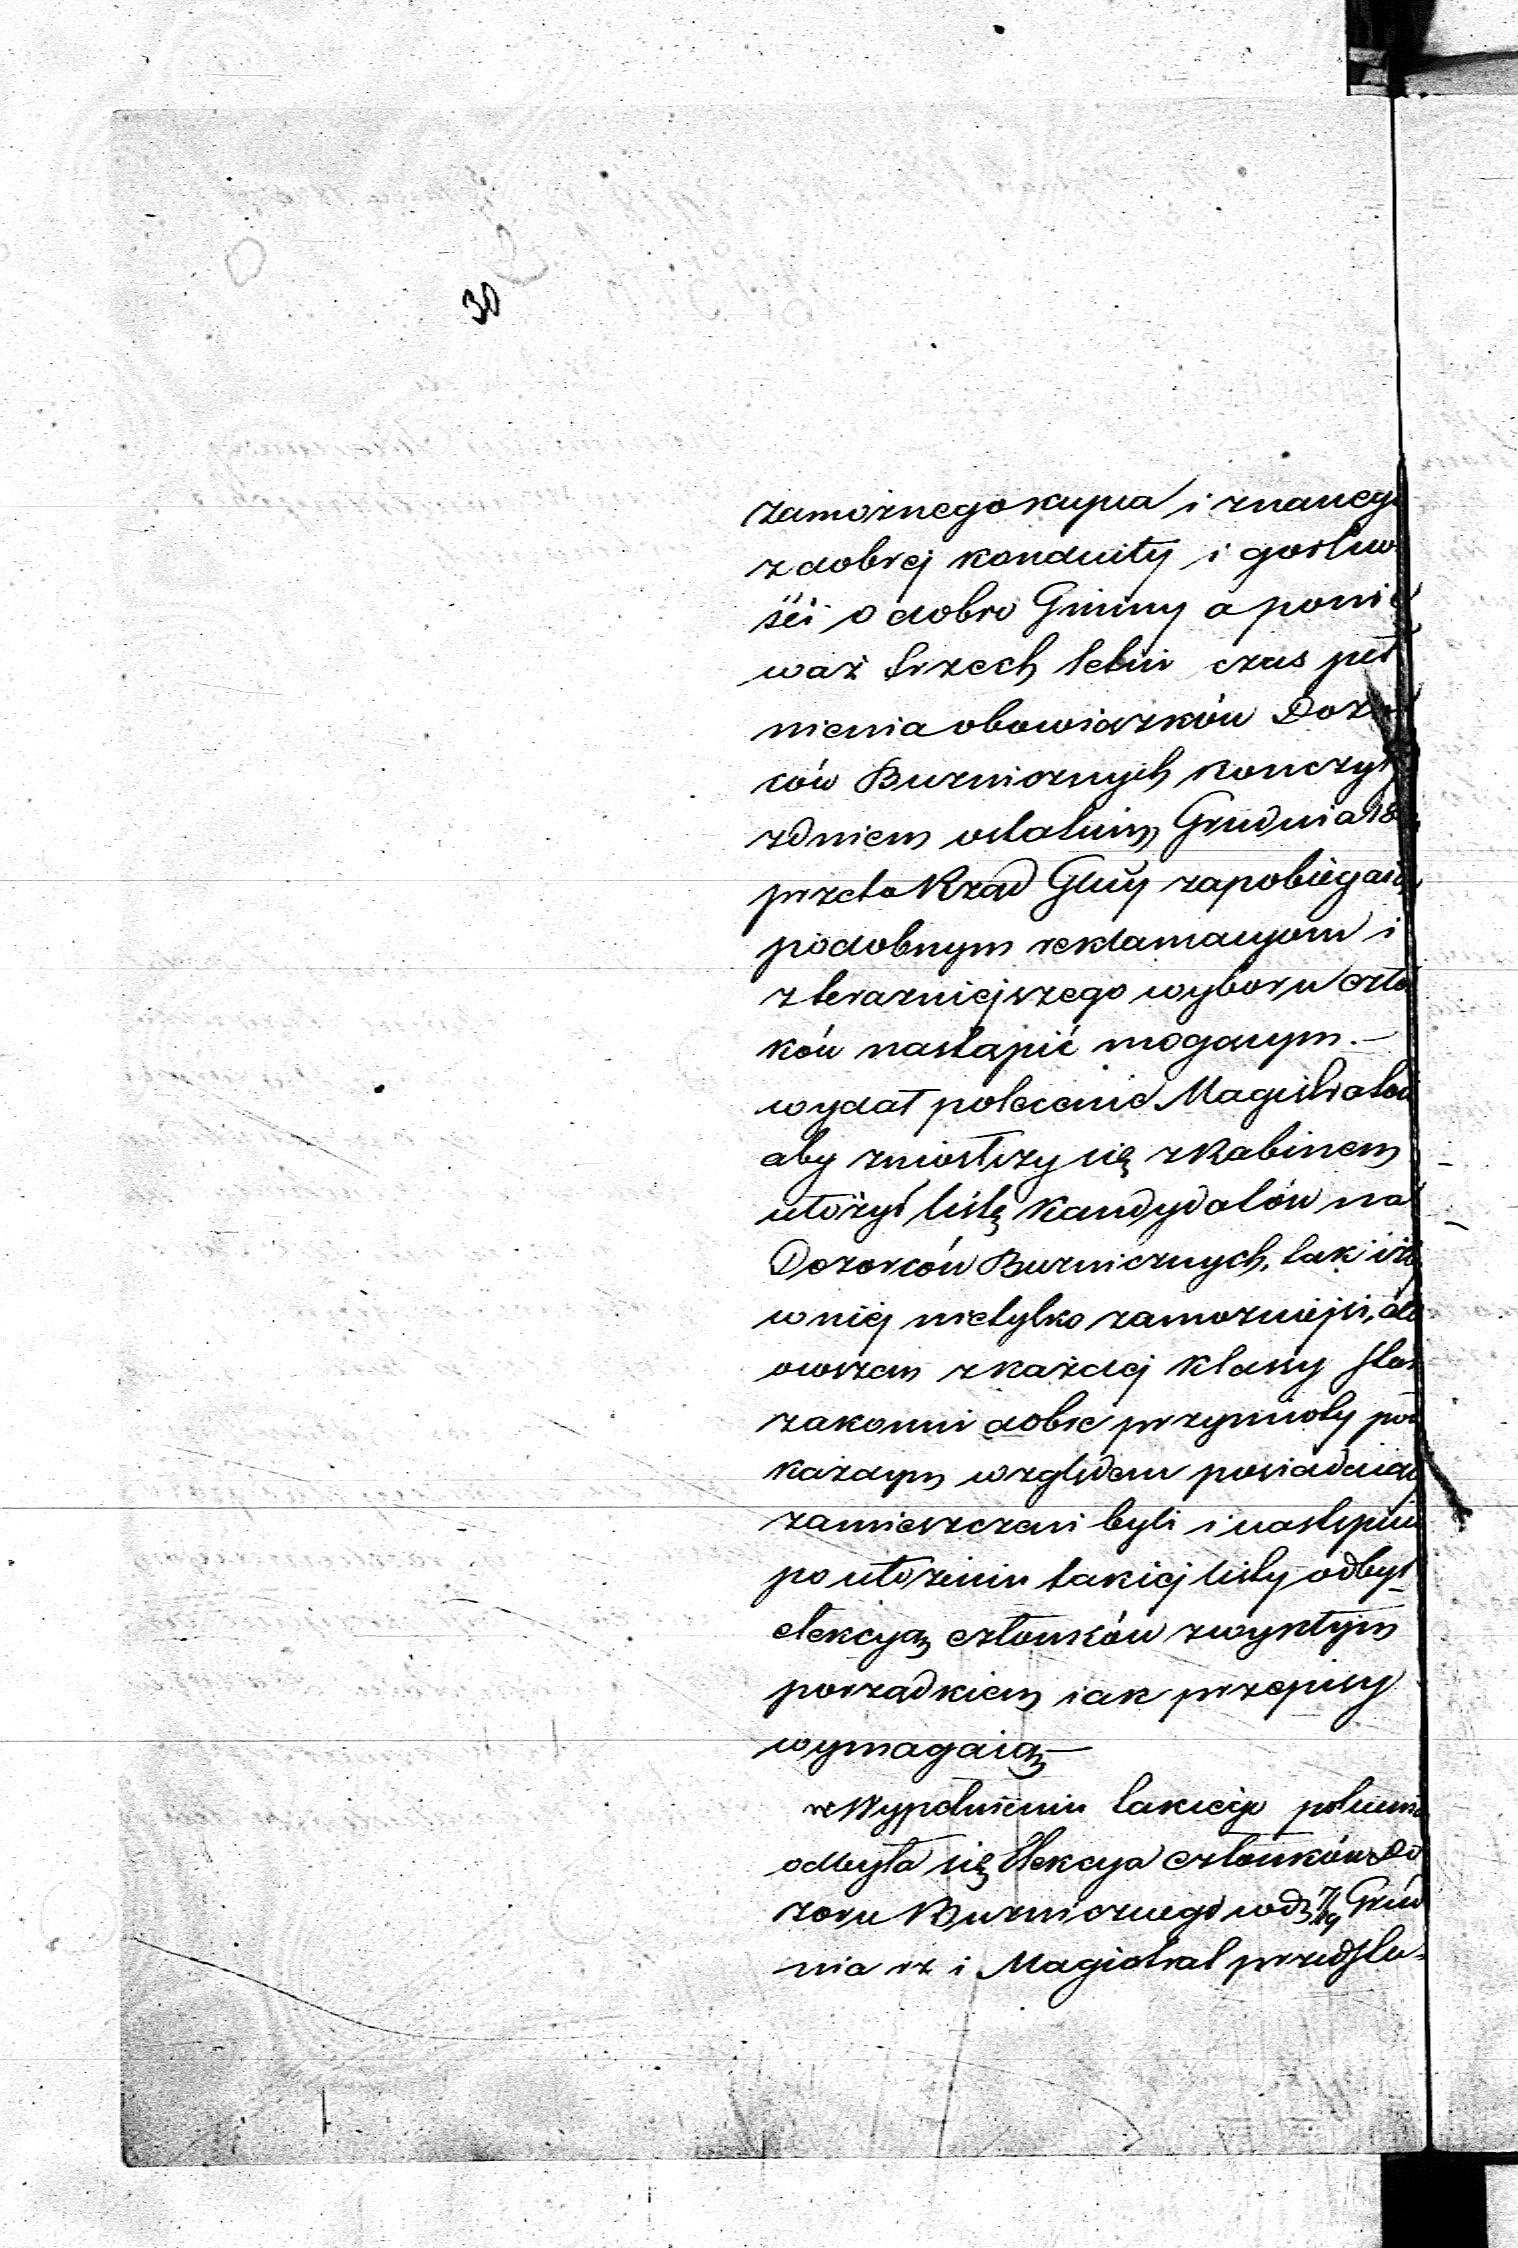 30
zamożnego kupca i znanego
z dobrej konduity i gorliwo
ści o dobro Gminy a ponie
waż trzech letni czas peł
nienia obowiązków Dozor
ców Bużnicznych konczył
z dniem ostatnim Grudnia 18
przeto Rząd Głłny zapobiegaiąc
podobnym reklamacyom i
z teraznieyszego wyboru człon
ków nastąpić mogącym. —
wydał polecenie Magistratowi
aby zniosłszy się z Rabinem
ułożył listę Kandydatów na
Dozorców Bużnicznych, tak iżby
w niej nietylko zamożniejsi, ale
owszem z każdej klassy Sta
rozakonni dobre przymioty pod
każdym względem posiadaiący
zamieszczeni byli i następnie
po ułożeniu takiej listy odbył
elekcyą członków zwykłym
porządkiem iak przepisy
wymagaią —
w Wypełnieniu takiego polecenia
odbyła się Elekcya członków Do
zoru Bużnicznego w d 7/19 Grud
nia rz i Magistrat przedsta-